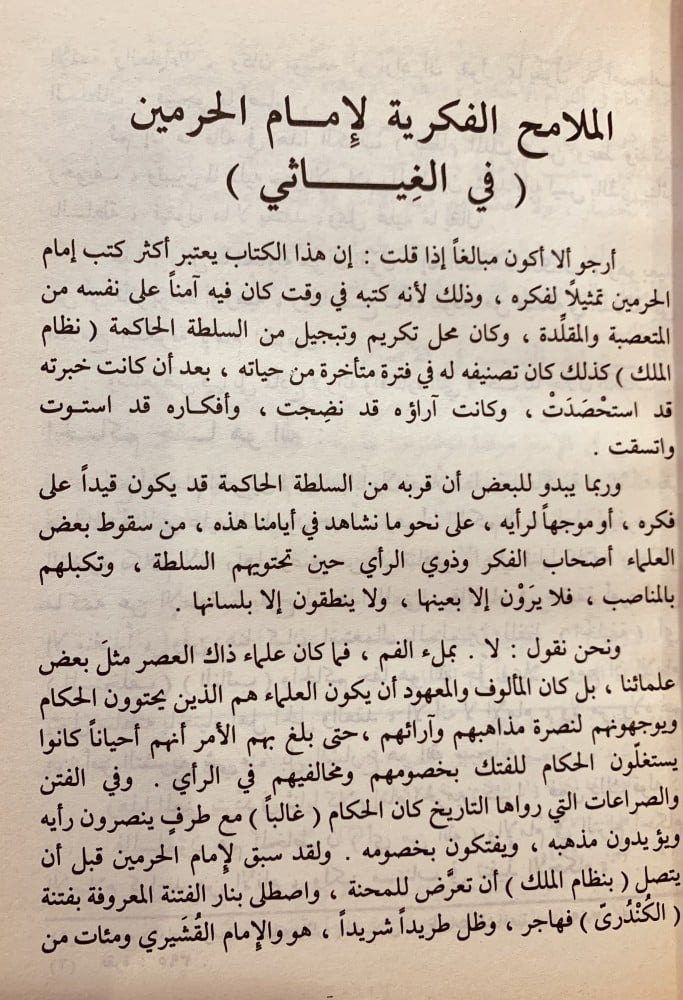 الملامح الفكرية لإِمـــام الحرمين
( في الغِيـــــاثي )
أرجو ألا أكون مبالغاً إذا قلت : إن هذا الكتاب يعتبر أكثر كتب إمام
الحرمين تمثيلاً لفكره ، وذلك لأنه كتبه في وقت كان فيه آمناً على نفسه من
المتعصبة والمقلِّدة ، وكان محل تكريم وتبجيل من السلطة الحاكمة ( نظام
الملك ) كذلك كان تصنيفه له في فترة متأخرة من حياته ، بعد أن كانت خبرته
قد استحْصَدَتْ ، وكانت آراؤه قد نضِجت ، وأفكاره قد استوت
واتسقت .
وربما يبدو للبعض أن قربه من السلطة الحاكمة قد يكون قيداً على
فكره ، أو موجهاً لرأيه ، على نحو ما نشاهد في أيامنا هذه ، من سقوط بعض
العلماء أصحاب الفكر وذوي الرأي حين تحتويهم السلطة ، وتكبلهم
بالمناصب ، فلا يَرَوْن إلا بعينها ، ولا ينطقون إلا بلسانها .
ونحن نقول : لا . بملء الفم ، فما كان علماء ذاك العصر مثلَ بعض
علمائنا ، بل كان المألوف والمعهود أن يكون العلماء هم الذين يحتوون الحكام
ويوجهونهم لنصرة مذاهبهم وآرائهم ، حتى بلغ بهم الأمر أنهم أحياناً كانوا
يستغلّون الحكام للفتك بخصومهم ومخالفيهم في الرأي . وفي الفتن
والصراعات التي رواها التاريخ كان الحكام ( غالباً ) مع طرفٍ ينصرون رأيه
ويؤيدون مذهبه ، ويفتكون بخصومه . ولقد سبق لإِمام الحرمين قبل أن
يتصل ( بنظام الملك ) أن تعرَّض للمحنة ، واصطلى بنار الفتنة المعروفة بفتنة
( الكُنْدُرىّ ) فهاجر ، وظل طريداً شريداً ، هو والإِمام القُشَيري ومئات من